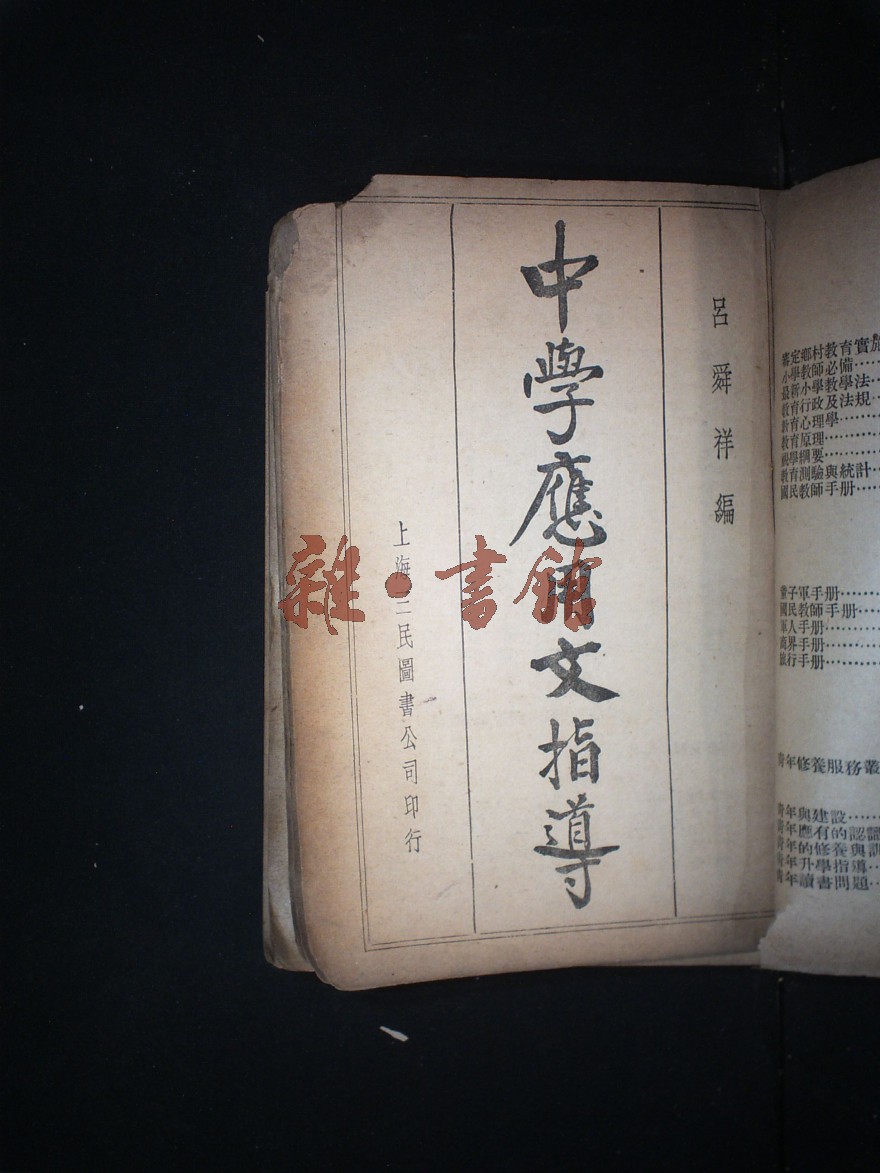 呂舜祥編
中學應用文指導
上海三民圖書公司印行
雜·書館
審定鄉村教育實施
小學教師必備……
最新小學教學法…
教育行政及法規…
教育心理學……
教育原理……
教學綱要……
教育測驗與統計…
國民教師手册……
童子軍手册……
國民教師手册…
軍人手册……
商界手册……
旅行手册……
青年修養服務叢
青年與建設……
青年應有的認識
青年的修養與訓
青年升學指導…
青年讀書問題…